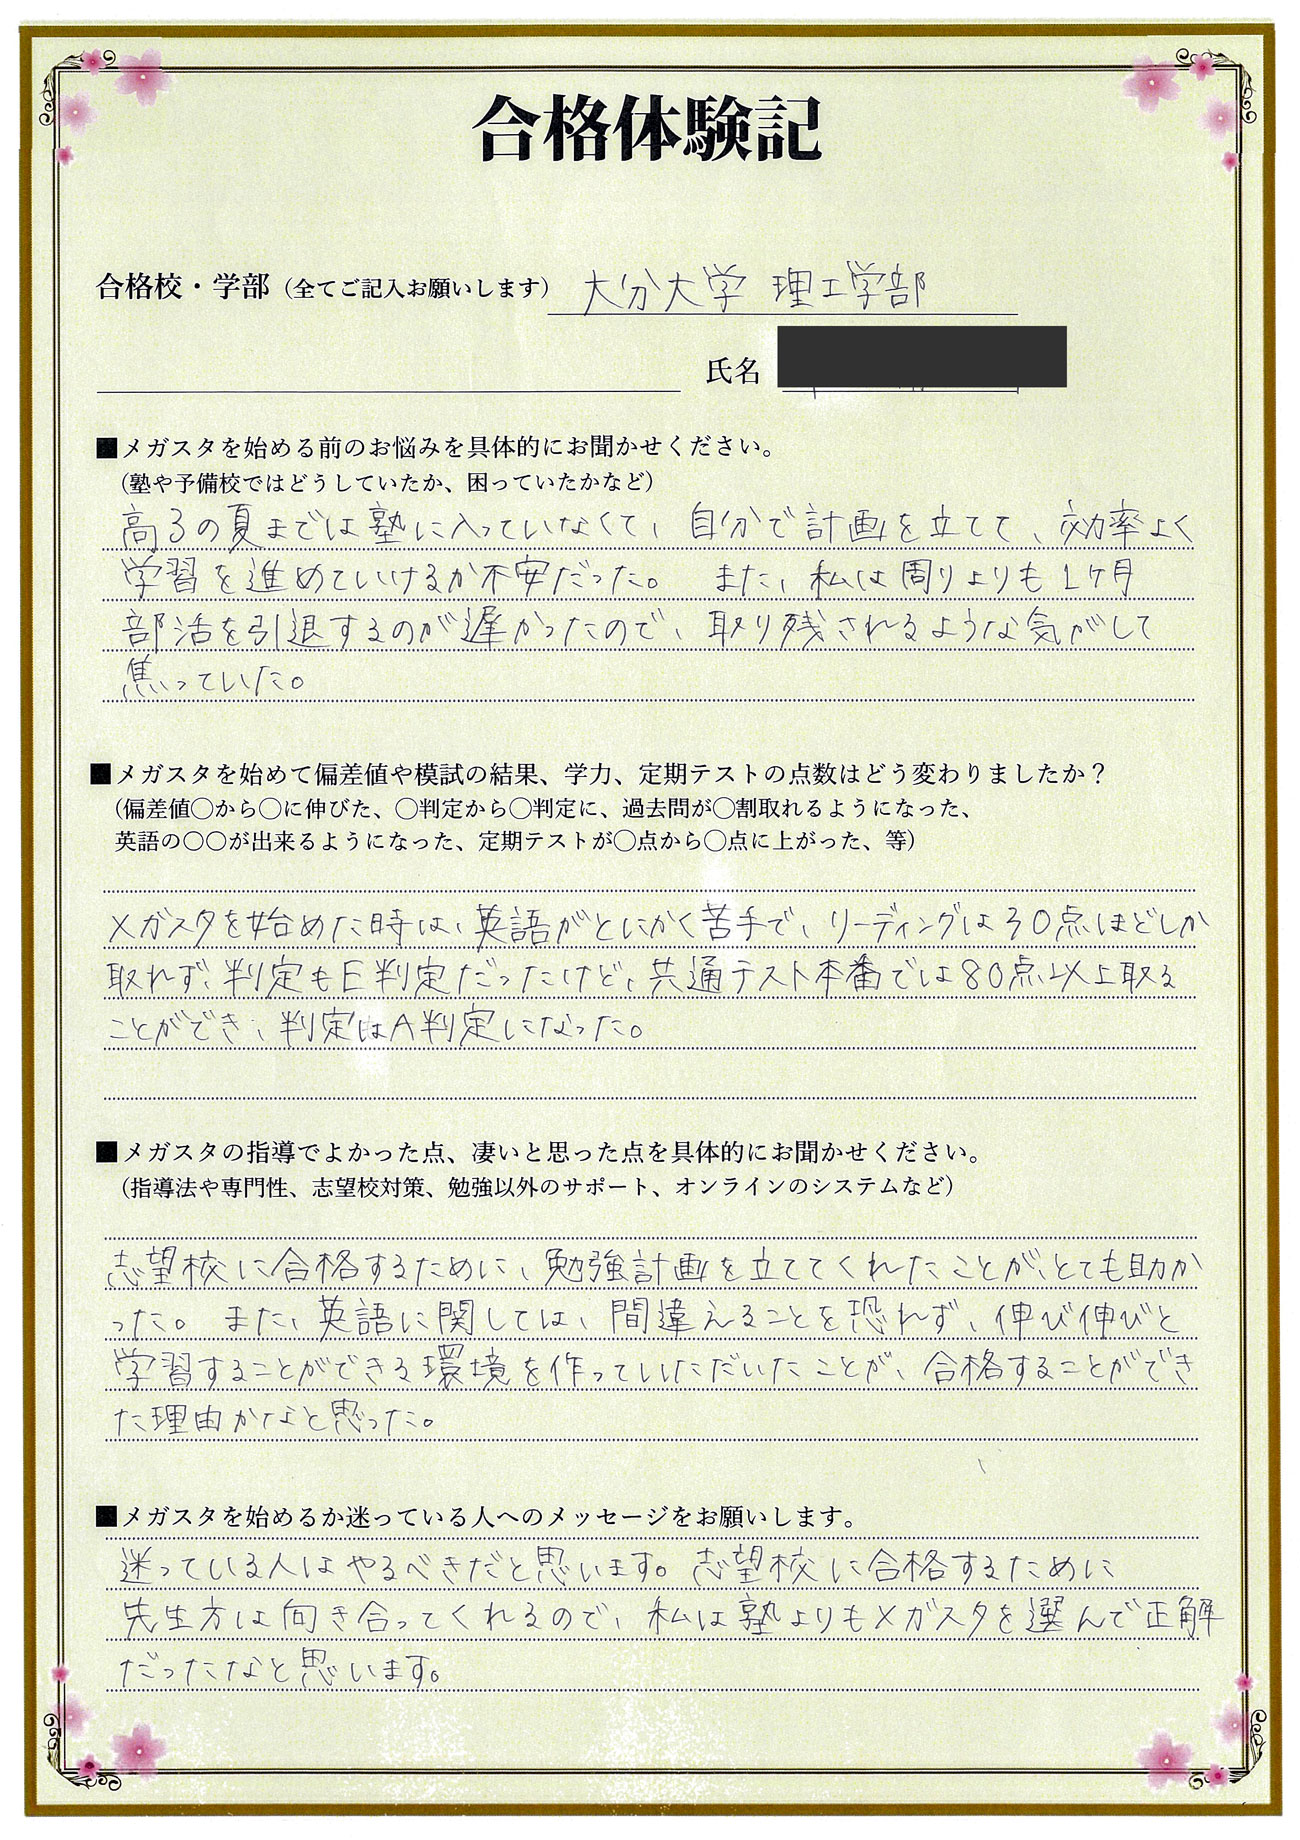 合格体験記
合格校・学部（全てご記入お願いします） 大分大学 理工学部
氏名
■メガスタを始める前のお悩みを具体的にお聞かせください。
（塾や予備校ではどうしていたか、困っていたかなど）
高3の夏までは塾に入っていなくて、自分で計画を立てて、効率よく
学習を進めていけるか不安だった。 また、私は周りよりも1ヶ月
部活を引退するのが遅かったので、取り残されるような気がして
焦っていた。
■メガスタを始めて偏差値や模試の結果、学力、定期テストの点数はどう変わりましたか？
（偏差値〇から〇に伸びた、〇判定から〇判定に、過去問が〇割取れるようになった、
英語の〇〇が出来るようになった、定期テストが〇点から〇点に上がった、等）
メガスタを始めた時は、英語がとにかく苦手で、リーディングは30点ほどしか
取れず、判定もE判定だったけど、共通テスト本番では80点以上取る
ことができ、判定はA判定になった。
■メガスタの指導でよかった点、凄いと思った点を具体的にお聞かせください。
（指導法や専門性、志望校対策、勉強以外のサポート、オンラインのシステムなど）
志望校に合格するために、勉強計画を立ててくれたことが、とても助か
った。 また、英語に関しては、間違えることを恐れず、伸び伸びと
学習することができる環境を作っていただいたことが、合格することができ
た理由かなと思った。
■メガスタを始めるか迷っている人へのメッセージをお願いします。
迷っている人はやるべきだと思います。志望校に合格するために
先生方は向き合ってくれるので、私は塾よりもメガスタを選んで正解
だったなと思います。